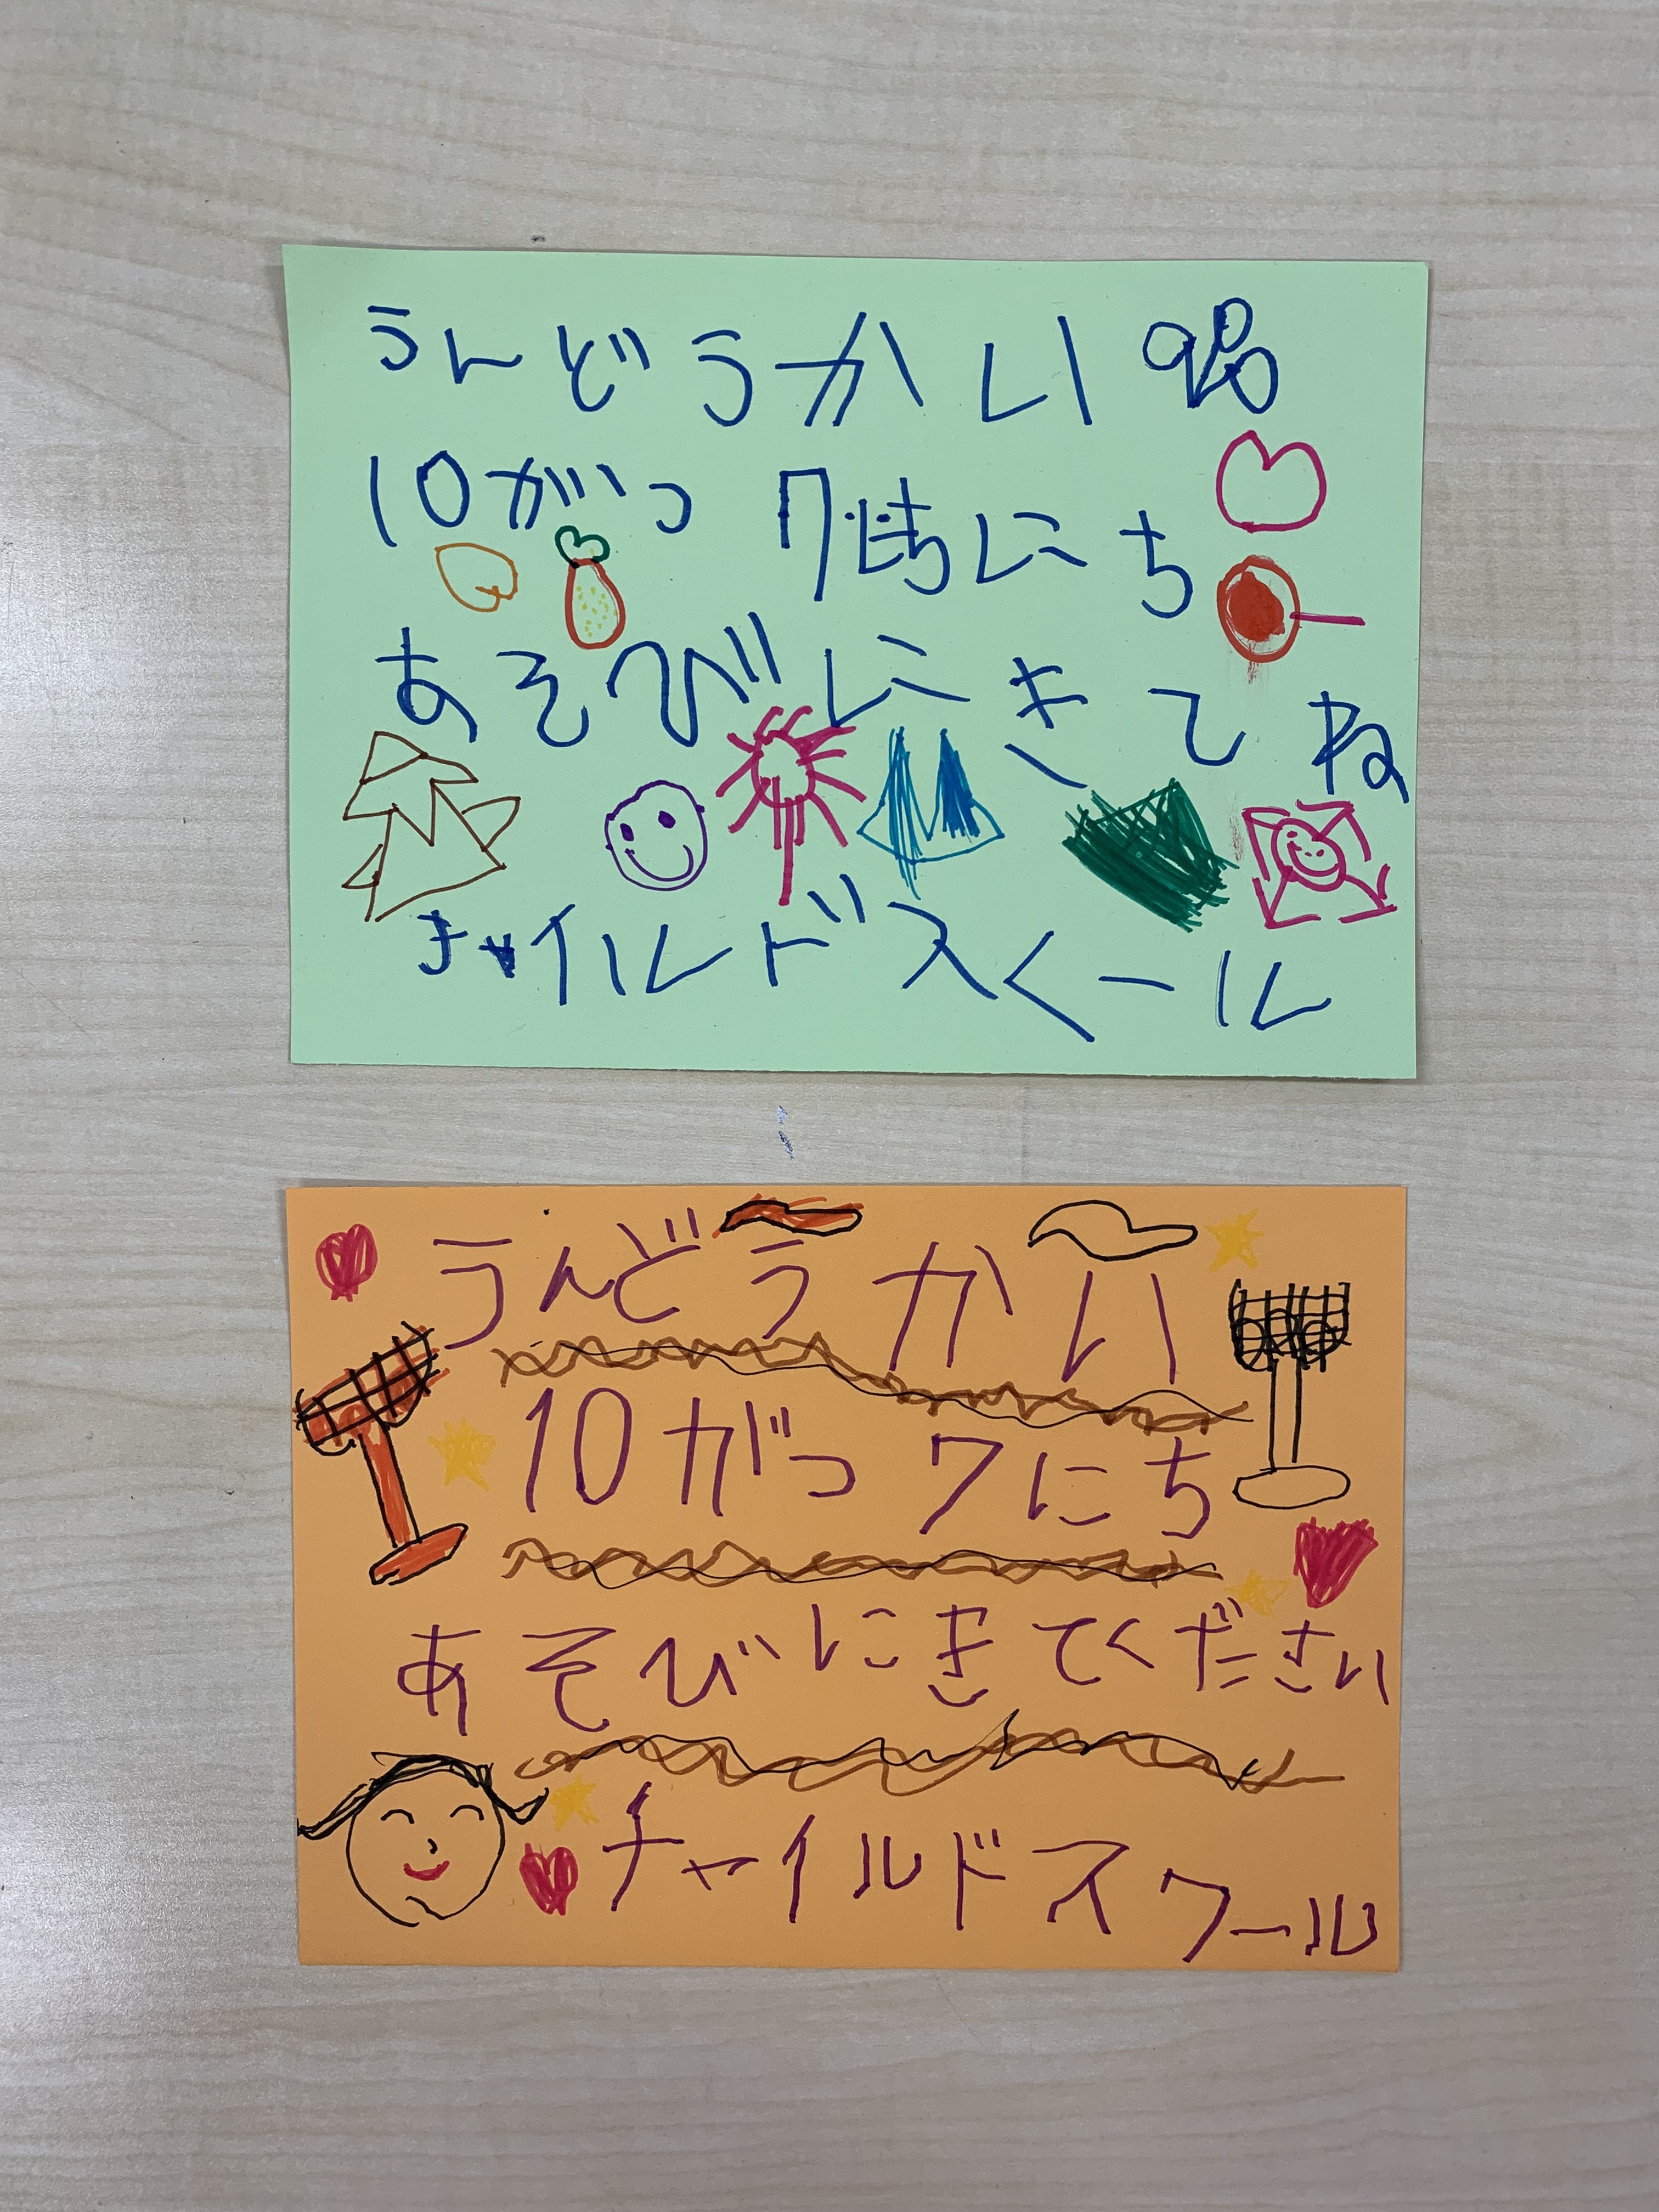 うんどうかい
10がつ 7にち
あそびにきてね
チャイルドスクール
うんどうかい
10がつ7にち
あそびにきてください
チャイルドスクール